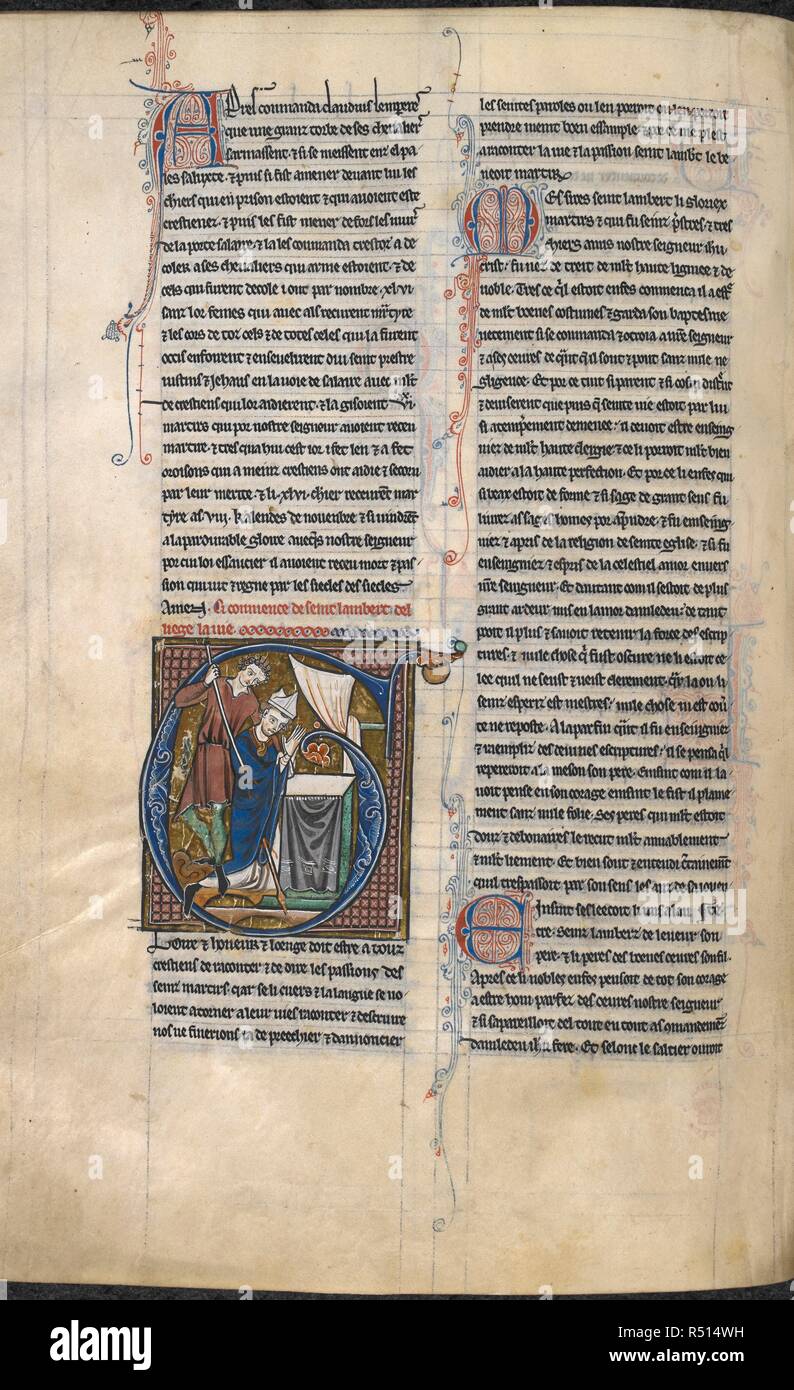 Apres comanda claudius lempere
que une granz torbe de ses chevalier
sarmassent & si se meissent enz el pa
les saluste & puis si fist amener devant lui les
chiers qui en prison estoient & qui avoient este
crestiener & puis les fist mener defors les murs
de la porte salaire & la les comanda crestor a de
coler a ses chevaliers qui arme estoient & de
cels qui furent decole i ont par nombre xlvi
sanz lor femes qui avec als recurent martyre
& les cors de tor cels & de totes celes qui la furent
occis enfoirent & ensevelirent dui seint prestre
iustins & iehans en la voie de salaire avec mlt
de crestiens qui lor aidierent & la gisoient xlvi
martirs qui por nostre seigneur avoient receu
martire & tres qua hui cest ior i fet len & a fet
oroisons qui a meinz crestiens ont aidie & secoru
par leur merite & li xlvi chier receurent mar
tyre as viii kalendes de novembre & si vindrent
a la pardurable gloire avecques nostre seigneur
por cui loi essaucier il avoient receu mort & pas
sion qui vit & regne par les siecles des siecles
Amen. Ci commence de seint lambert del
liege la vie
Glore & honeur & loenge doit estre a touz
crestiens de raconter & de dire les passions des
seinz martirs qar se li cuers & la langue se vo
loient atorner a leur vies raconter & descrivre
nos ne finerions ia de preechier & dannoncier
les seintes paroles ou len porroit
prendre meint boen essample & por ce me plest
a raconter la vie & la passion seint lambert le be
neoit martir
Mes sires seint lambert li glorieux
martirs & qui fu seinz prestres & tres
chiers amis nostre seigneur ihu
crist fu nez de treit de mlt haute lignee & de
noble. Tres ce quil estoit enfes commenca il a
de mlt boenes costumes & garda son baptesme
netement si se comanda & octroia a nostre seigneur
& a ses oevres de quant quil sont & pont sanz nule ne
gligence. Et por ce tuit si parent & si cosin distrent
& deviserent que puis que seinte vie estoit par lui
si atempreement demenee il devoit estre enseig
niez de mlt haute clergie & ce li porroit mlt bien
aidier a la haute perfection. Et por ce li enfes qui
si beax estoit de forme & si sage de grant sens fu
livrez as sages homes por aprendre & fu enseing
niez & apris de la religion de seinte eglise & si fu
enseigniez & espris de la celestiel amor envers
nostre seigneur. Et dautant com il sestoit de plus
grant ardeur mis en lamor damledeu de tant
poit il plus & savoit retenir la force des escrip
tures & nule chose qui fust oscure ne li estoit ce
lee quil ne seust & veist clerement qar la ou li
seinz esperiz est mestres nule chose ni est cou
te ne reposte. A la parfin quant il fu enseigniez
& raempliz des devines escriptures il se pensa quil
repereroit a la meson son pere. Einsint com il la
voit pense en son corage einsint le fist il plaine
ment sanz nule folie. Ses peres qui mlt estoit
douz & debonaires le recut mlt amiablement
& mlt liement. Et bien sont & entendi certainement
quil trespassoit par son sens les anz de sa joven
Einsint sesleecoit li uns a lautre
Seinz lambertz de leneur son
pere & li peres des boenes oeures son fil.
Apres ce li nobles enfes pensoit de tot son corage
a estre hom parfez des oeures nostre seigneur
& si sapareilloit del tout en tout as comandemenz
damledeu a fere. Et selonc le saltier
a
alamy
alamy
Image ID: R514WH
www.alamy.com